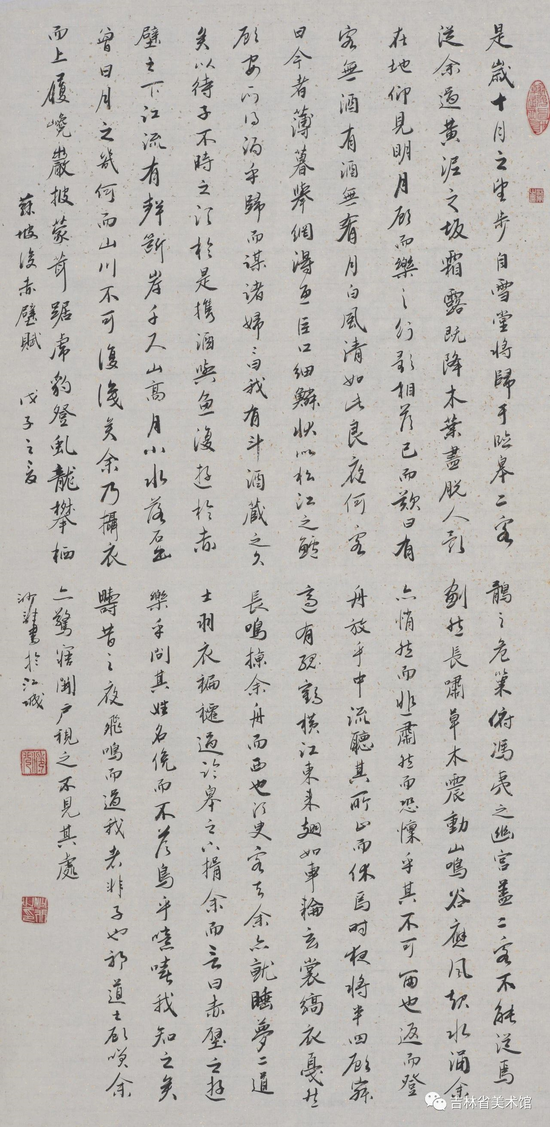 是歲十月之望步自雪堂將歸于臨皋二客
從余過黃泥之坂霜露既降木葉盡脫人影
在地仰見明月顧而樂之行歌相答已而歎曰有
客無酒有酒無肴月白風清如此良夜何客
曰今者薄暮舉網得魚巨口細鱗狀似松江之鱸
顧安所得酒乎歸而謀諸婦婦曰我有斗酒藏之久
矣以待子不時之須於是攜酒與魚復遊於赤
壁之下江流有聲斷岸千尺山高月小水落石出
曾日月之幾何而山川不可復識矣余乃攝衣
而上履巉巖披蒙茸踞虎豹登虬龍攀栖
鶻之危巢俯馮夷之幽宮蓋二客不能從焉
劃然長嘯草木震動山鳴谷應風起水涌余
亦悄然而悲肅然而恐懍乎其不可留也返而登
舟放乎中流聽其所止而休焉時夜將半四顧寂
適有孤鶴橫江東來翅如車輪玄裳縞衣戛然
長鳴掠余舟而西也須臾客去余亦就睡夢二道
士羽衣翩躚過臨皋之下揖余而言曰赤壁之遊
樂乎問其姓名俛而不答嗚乎噫嘻我知之矣
疇昔之夜飛鳴而過我者非子也耶道士顧笑余
亦驚寤開戶視之不見其處
蘇坡後赤壁賦 戊子之夏
書於江城
吉林省美术馆